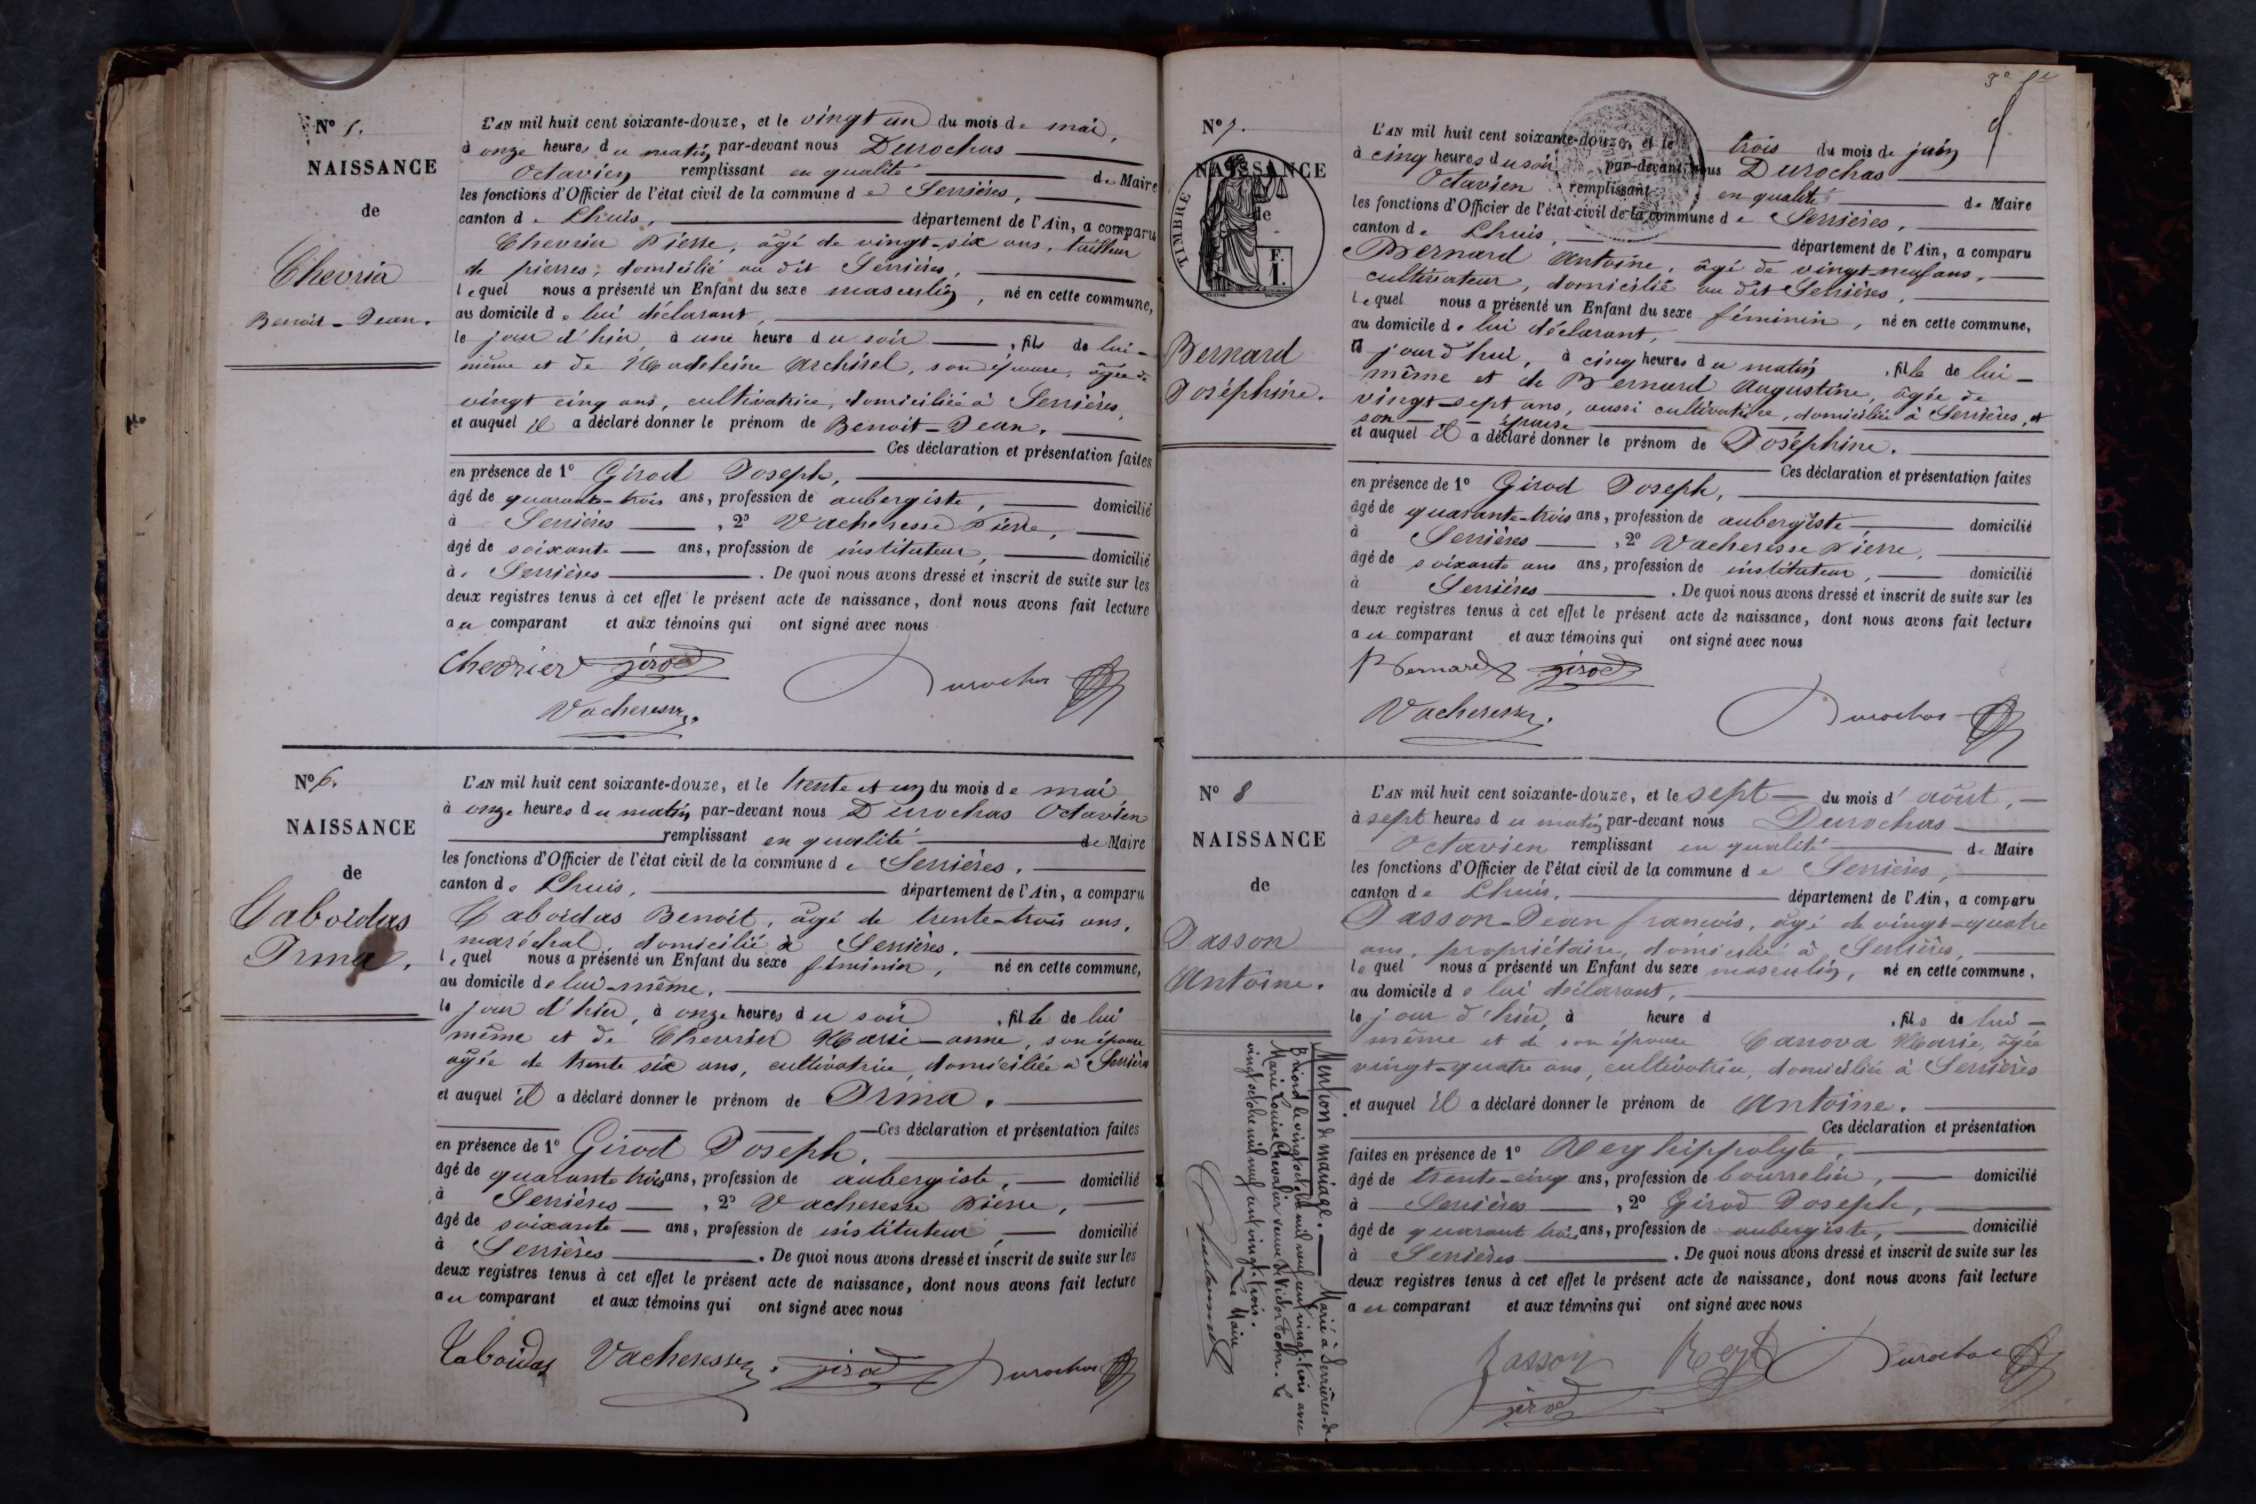 N° 5.
NAISSANCE
de
Chevrier
Benoit-Jean.
L'AN mil huit cent soixante-douze, et le vingt un du mois de mai,
à onze heures du matin par-devant nous Durochas
Octavien remplissant en qualité de Maire
les fonctions d'Officier de l'état civil de la commune de Serrières,
canton de Lhuis, département de l'Ain, a comparu
Chevrier Pierre, âgé de vingt-six ans, tailleur
de pierres, domicilié au dit Serrières,
lequel nous a présenté un Enfant du sexe masculin, né en cette commune,
au domicile de lui déclarant,
le jour d'hier, à une heure du soir, fils de lui-
même et de Madeleine Archirel, son épouse, âgée de
vingt cinq ans, cultivatrice, domiciliée à Serrières,
et auquel il a déclaré donner le prénom de Benoit-Jean.
Ces déclaration et présentation faites
en présence de 1° Girod Joseph,
âgé de quarante-trois ans, profession de aubergiste, domicilié
à Serrières, 2° Vacheresse Pierre,
âgé de soixante ans, profession de instituteur, domicilié
à Serrières. De quoi nous avons dressé et inscrit de suite sur les
deux registres tenus à cet effet le présent acte de naissance, dont nous avons fait lecture
au comparant et aux témoins qui ont signé avec nous
Chevrier girod Durochas
Vacheresse.
N° 6.
NAISSANCE
de
Taboidas
Irma.
L'AN mil huit cent soixante-douze, et le trente et un du mois de mai
à onze heures du matin par-devant nous Durochas Octavien
remplissant en qualité de Maire
les fonctions d'Officier de l'état civil de la commune de Serrières.
canton de Lhuis, département de l'Ain, a comparu
Taboidas Benoit, âgé de trente-trois ans,
maréchal, domicilié à Serrières.
lequel nous a présenté un Enfant du sexe féminin, né en cette commune,
au domicile de lui-même,
le jour d'hier, à onze heures du soir, fille de lui
même et de Chevrier Marie-anne, son épouse
agée de trente six ans, cultivatrice, domiciliée à Serrières
et auquel il a déclaré donner le prénom de Irma.
Ces déclaration et présentation faites
en présence de 1° Girod Joseph,
âgé de quarante trois ans, profession de aubergiste, domicilié
à Serrières, 2° Vacheresse Pierre,
âgé de soixante ans, profession de instituteur domicilié
à Serrières. De quoi nous avons dressé et inscrit de suite sur les
deux registres tenus à cet effet le présent acte de naissance, dont nous avons fait lecture
au comparant et aux témoins qui ont signé avec nous
Taboidas Vacheresse. girod Durochas
N° 7.
NAISSANCE
de
TIMBRE
1 F.
Bernard
Joséphine.
L'AN mil huit cent soixante-douze, et le trois du mois de juin
à cinq heures du soir par-devant nous Durochas
Octavien remplissant en qualité de Maire
les fonctions d'Officier de l'état civil de la commune de Serrières,
canton de Lhuis, département de l'Ain, a comparu
Bernard Antoine, âgé de vingt-neuf ans,
cultivateur, domicilié au dit Serrières,
lequel nous a présenté un Enfant du sexe féminin, né en cette commune,
au domicile de lui déclarant,
jourd'hui, à cinq heures du matin, fille de lui-
même et de Bernard Augustine, âgée de
vingt-sept ans, aussi cultivatrice, domiciliée à Serrières, et
son épouse
et auquel il a déclaré donner le prénom de Joséphine.
Ces déclaration et présentation faites
en présence de 1° Girod Joseph,
âgé de quarante-trois ans, profession de aubergiste domicilié
à Serrières, 2° Vacheresse Pierre,
âgé de soixante ans ans, profession de instituteur, domicilié
à Serrières. De quoi nous avons dressé et inscrit de suite sur les
deux registres tenus à cet effet le présent acte de naissance, dont nous avons fait lecture
au comparant et aux témoins qui ont signé avec nous
Bernard girod
Vacheresse. Durochas
N° 8
NAISSANCE
de
Jasson
Antoine.
L'AN mil huit cent soixante-douze, et le sept du mois d'août,
à sept heures du matin par-devant nous Durochas
Octavien remplissant en qualité de Maire
les fonctions d'Officier de l'état civil de la commune de Serrières,
canton de Lhuis, département de l'Ain, a comparu
Jasson-Jean francois, âgé de vingt-quatre
ans, propriétaire, domicilié à Serrières,
lequel nous a présenté un Enfant du sexe masculin, né en cette commune,
au domicile de lui déclarant,
le jour d'hier, à heure d, fils de lui-
même et de son épouse Canova Marie, âgée
vingt-quatre ans, cultivatrice, domiciliée à Serrières
et auquel il a déclaré donner le prénom de Antoine.
Ces déclaration et présentation
faites en présence de 1° Rey hippolyte,
âgé de trente-cinq ans, profession de bourrelier, domicilié
à Serrières, 2° Girod Joseph,
âgé de quarante trois ans, profession de aubergiste, domicilié
à Serrières. De quoi nous avons dressé et inscrit de suite sur les
deux registres tenus à cet effet le présent acte de naissance, dont nous avons fait lecture
au comparant et aux témoins qui ont signé avec nous
Jasson Rey Durochas
girod
Mention de mariage. Marié à Serrières-de-
Briord le vingt octobre mil neuf cent vingt-trois avec
Marie Louise Chevalier veuve de Victor. Le
vingt octobre mil neuf cent vingt-trois.
Le Maire